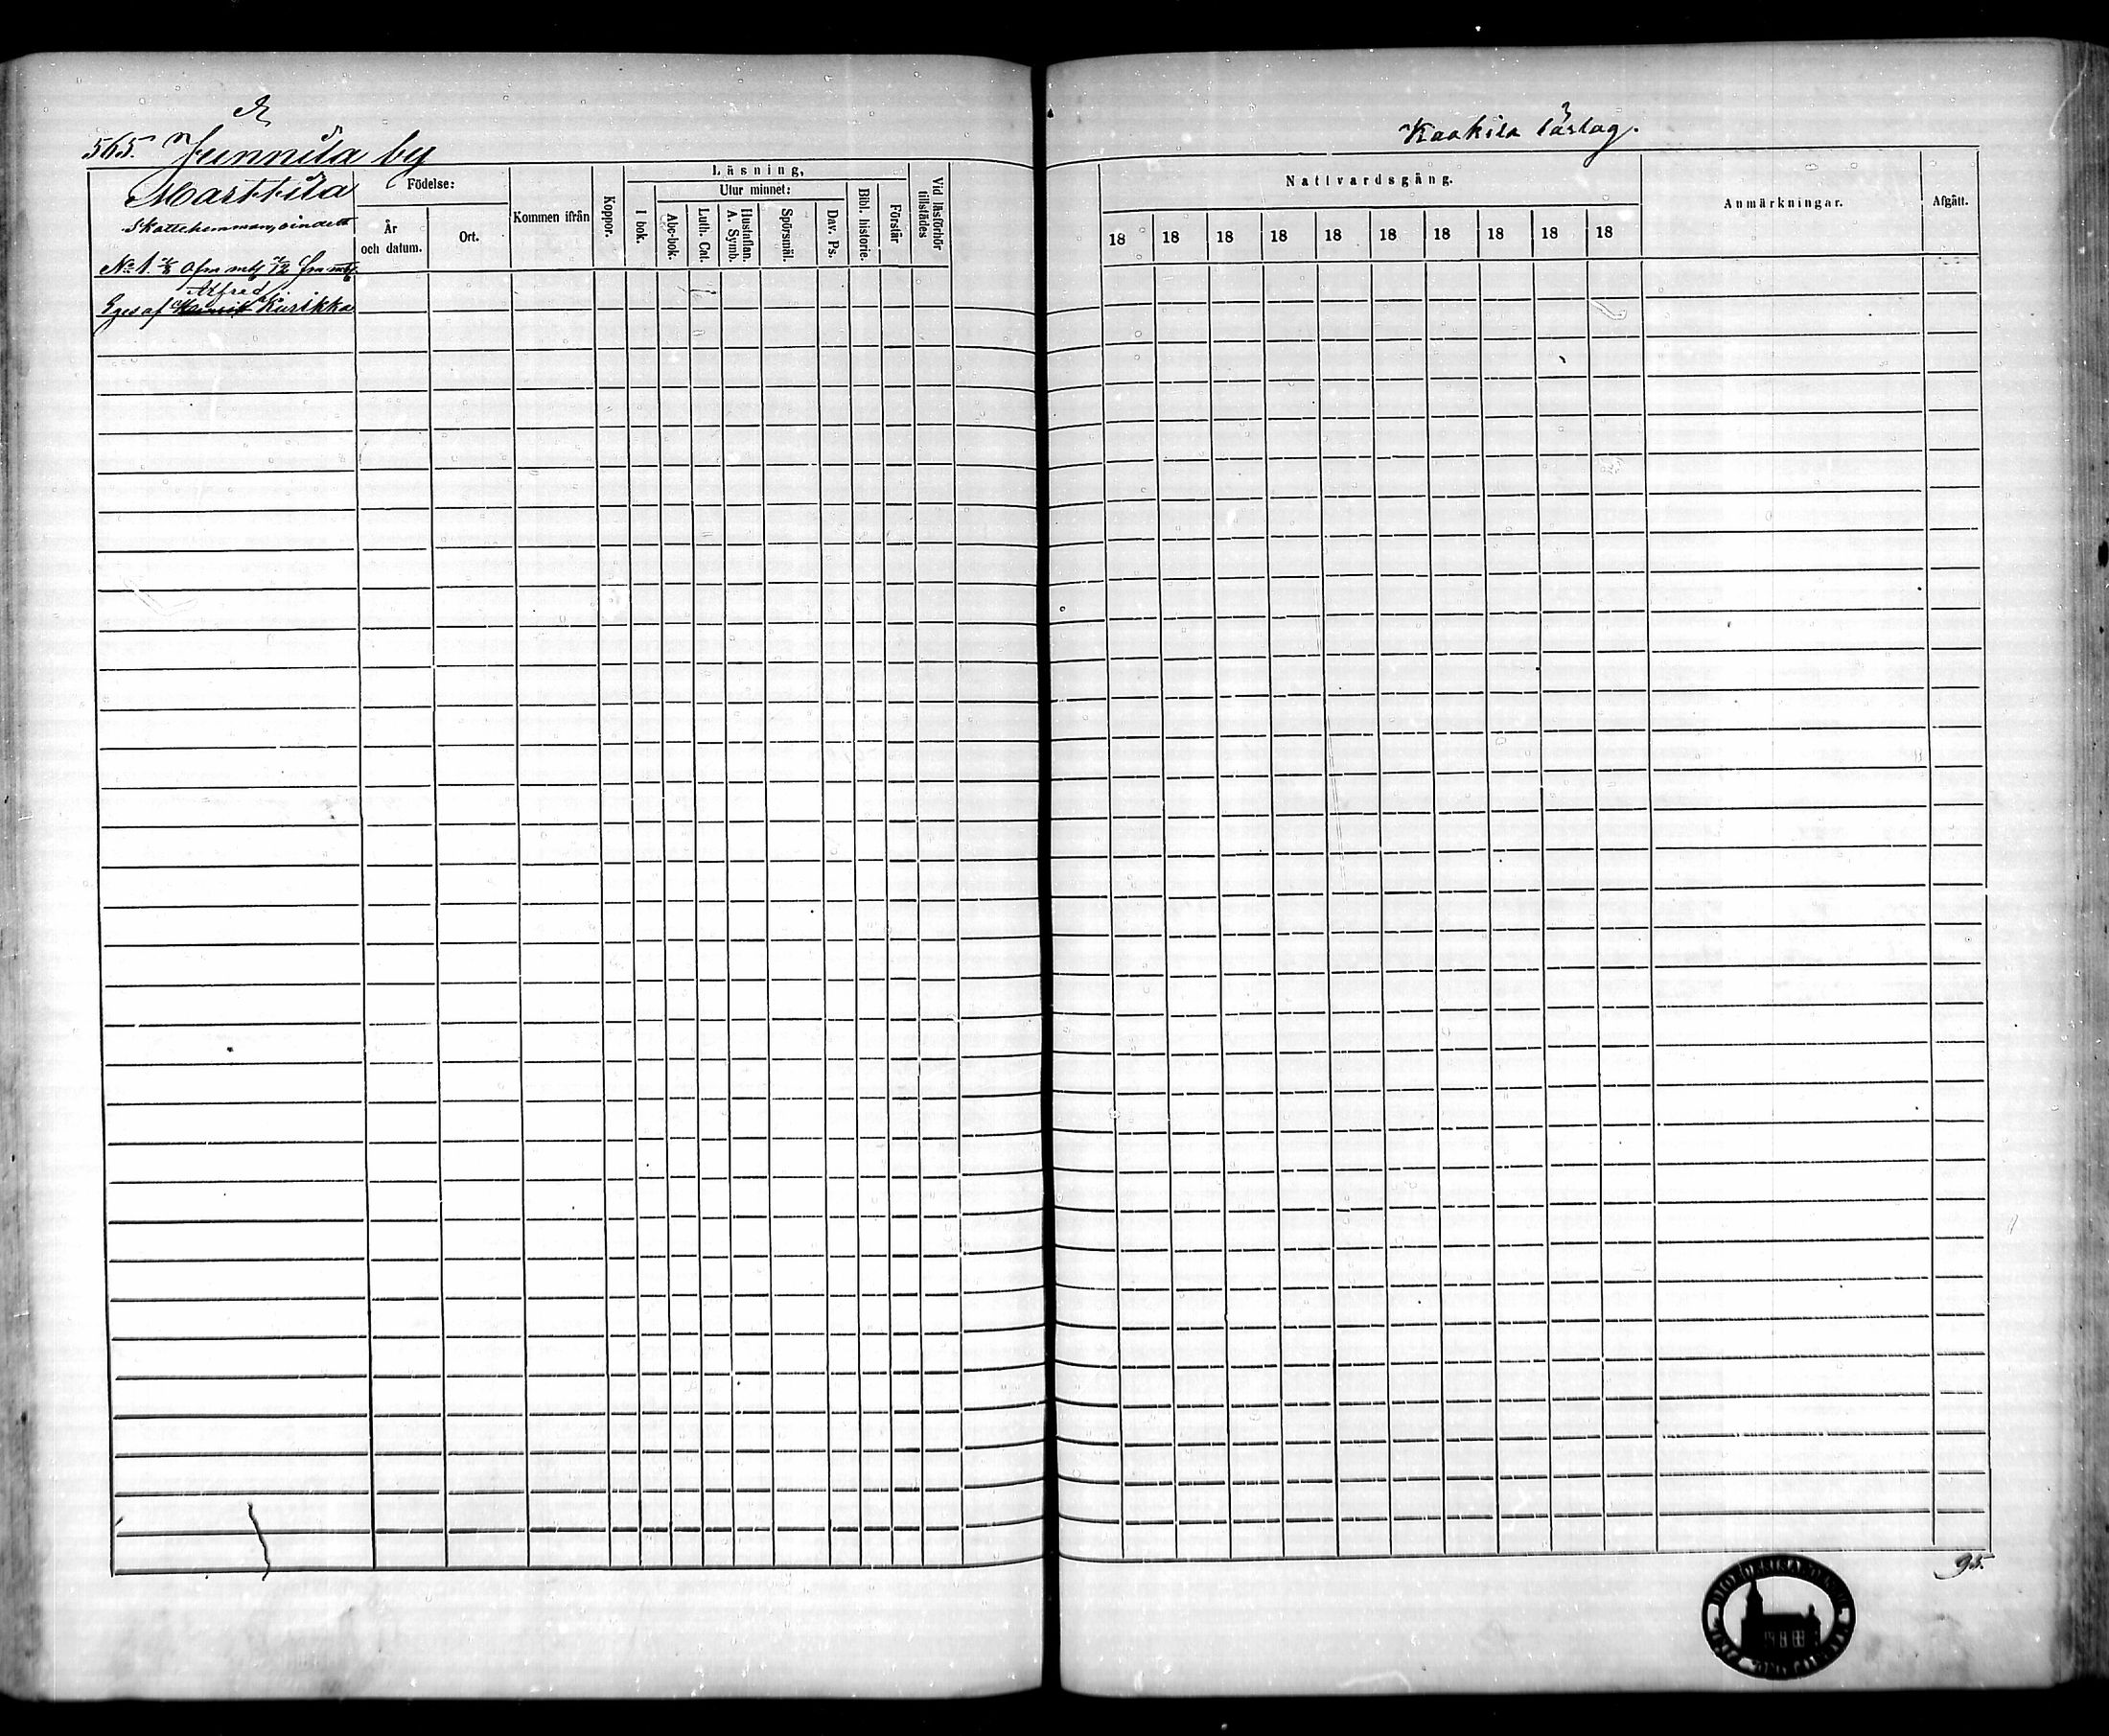 565. Junnila by
Marttila
Skattehemman,
No 1.
Alfred
Eges af Kurikka
Födelse:
År
och datum.
Ort.
Kommen ifrån
Koppor.
Läsning,
I bok.
Utur minnet:
Abc-bok.
Luth. Cat.
Hustaflan.
A. Symb.
Spörsmål.
Dav. Ps.
Bibl. historie.
Förstår
Vid läsförhör
tillstädes
Kaakila läslag.
Nattvardsgång.
18 18 18 18 18 18 18 18 18 18
Anmärkningar.
Afgått.
95.